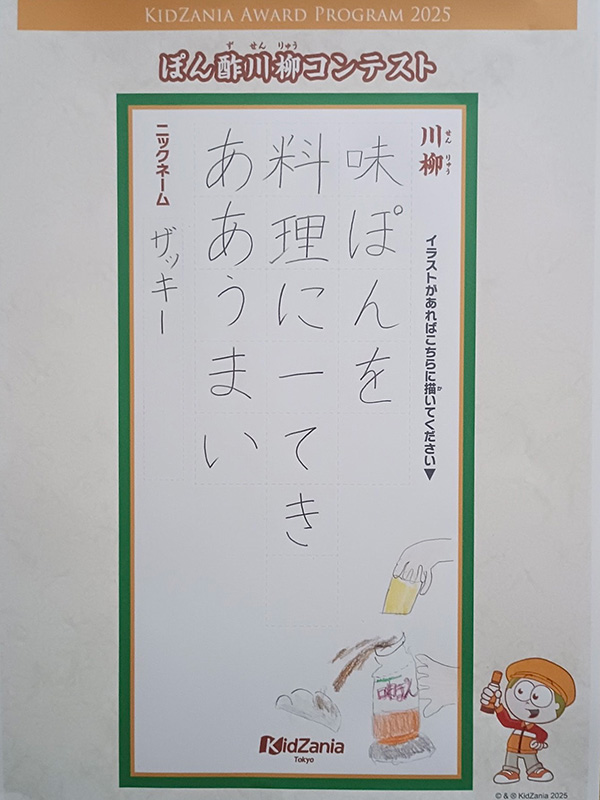 KIDZANIA AWARD PROGRAM 2025
ぽん酢川柳コンテスト
ず せん りゅう
川柳
せん りゅう
イラストがあればこちらに描いてください▼
か
味ぽんを
料理に一てき
ああうまい
ニックネーム
ザッキー
味ぽん
KidZania
Tokyo
© & ® KidZania 2025